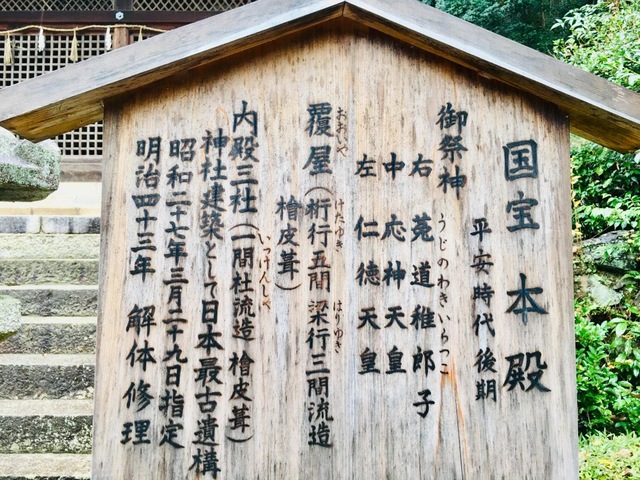 国宝 本殿
平安時代 後期
御祭神
右 菟道稚郎子
うじのわきいらつこ
中 応神天皇
左 仁徳天皇
覆屋(桁行五間 梁行三間流造
おおいや けたゆき はりゆき
檜皮葺)
内殿三社(一間社流造 檜皮葺)
いっけんしゃ
神社建築として日本最古遺構
昭和二十七年三月二十九日指定
明治四十三年 解体修理